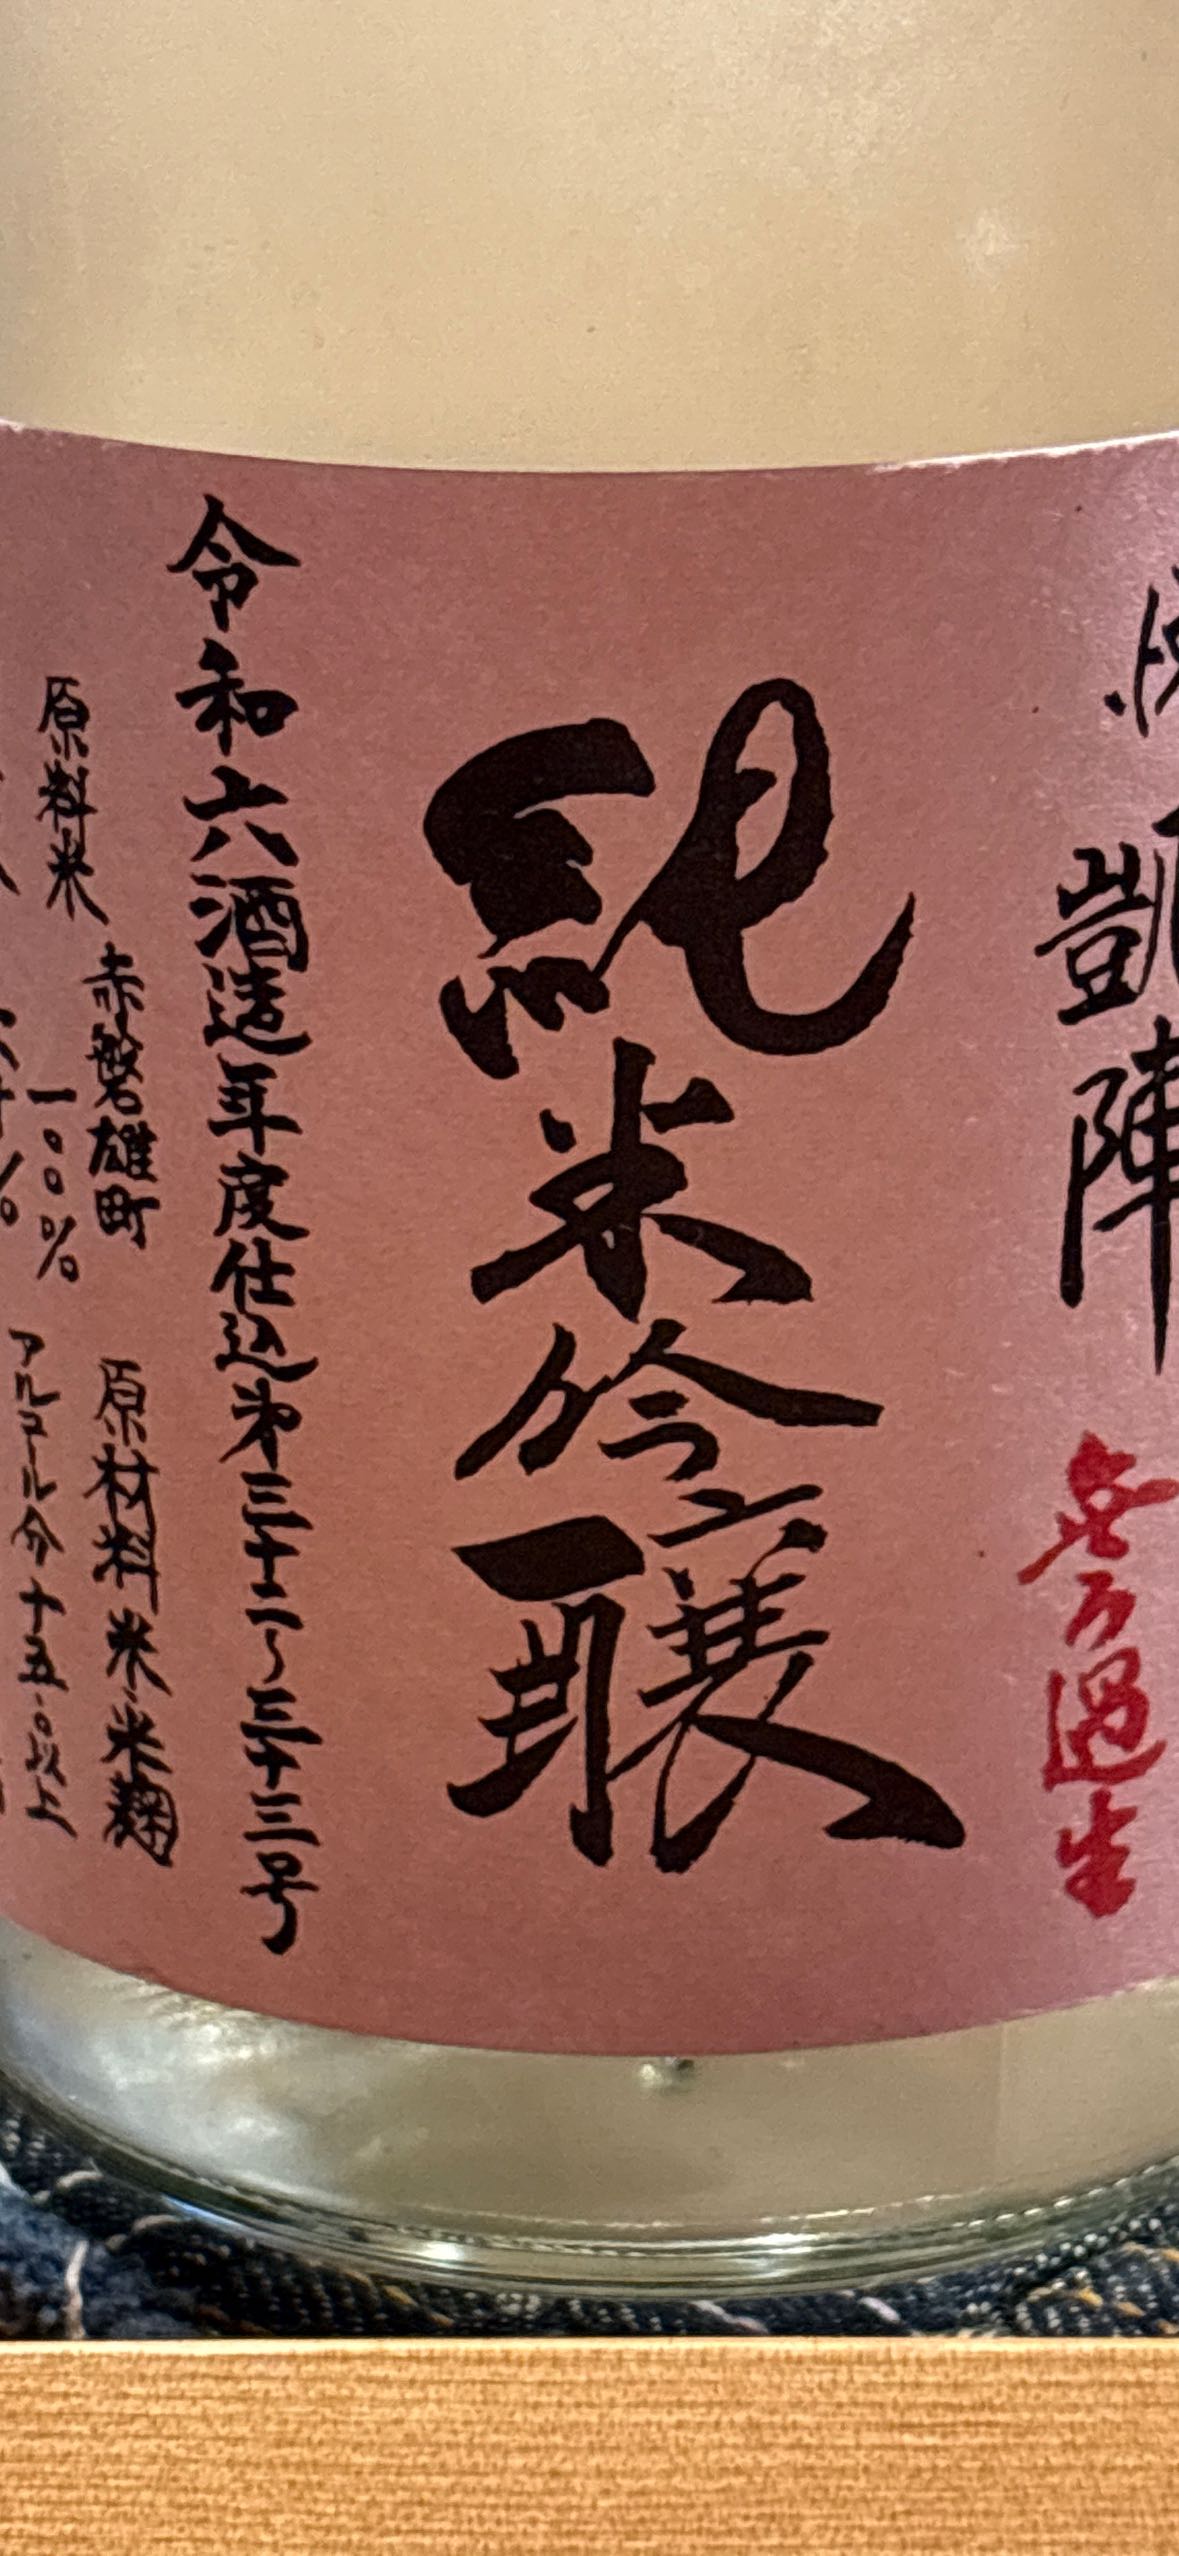 凱陣
無ろ過生
純米吟醸
令和六酒造年度仕込第三十二〜三十三号
赤磐雄町
原材料 米・米麹
原料米
一〇〇%
アルコール分 十五.〇以上